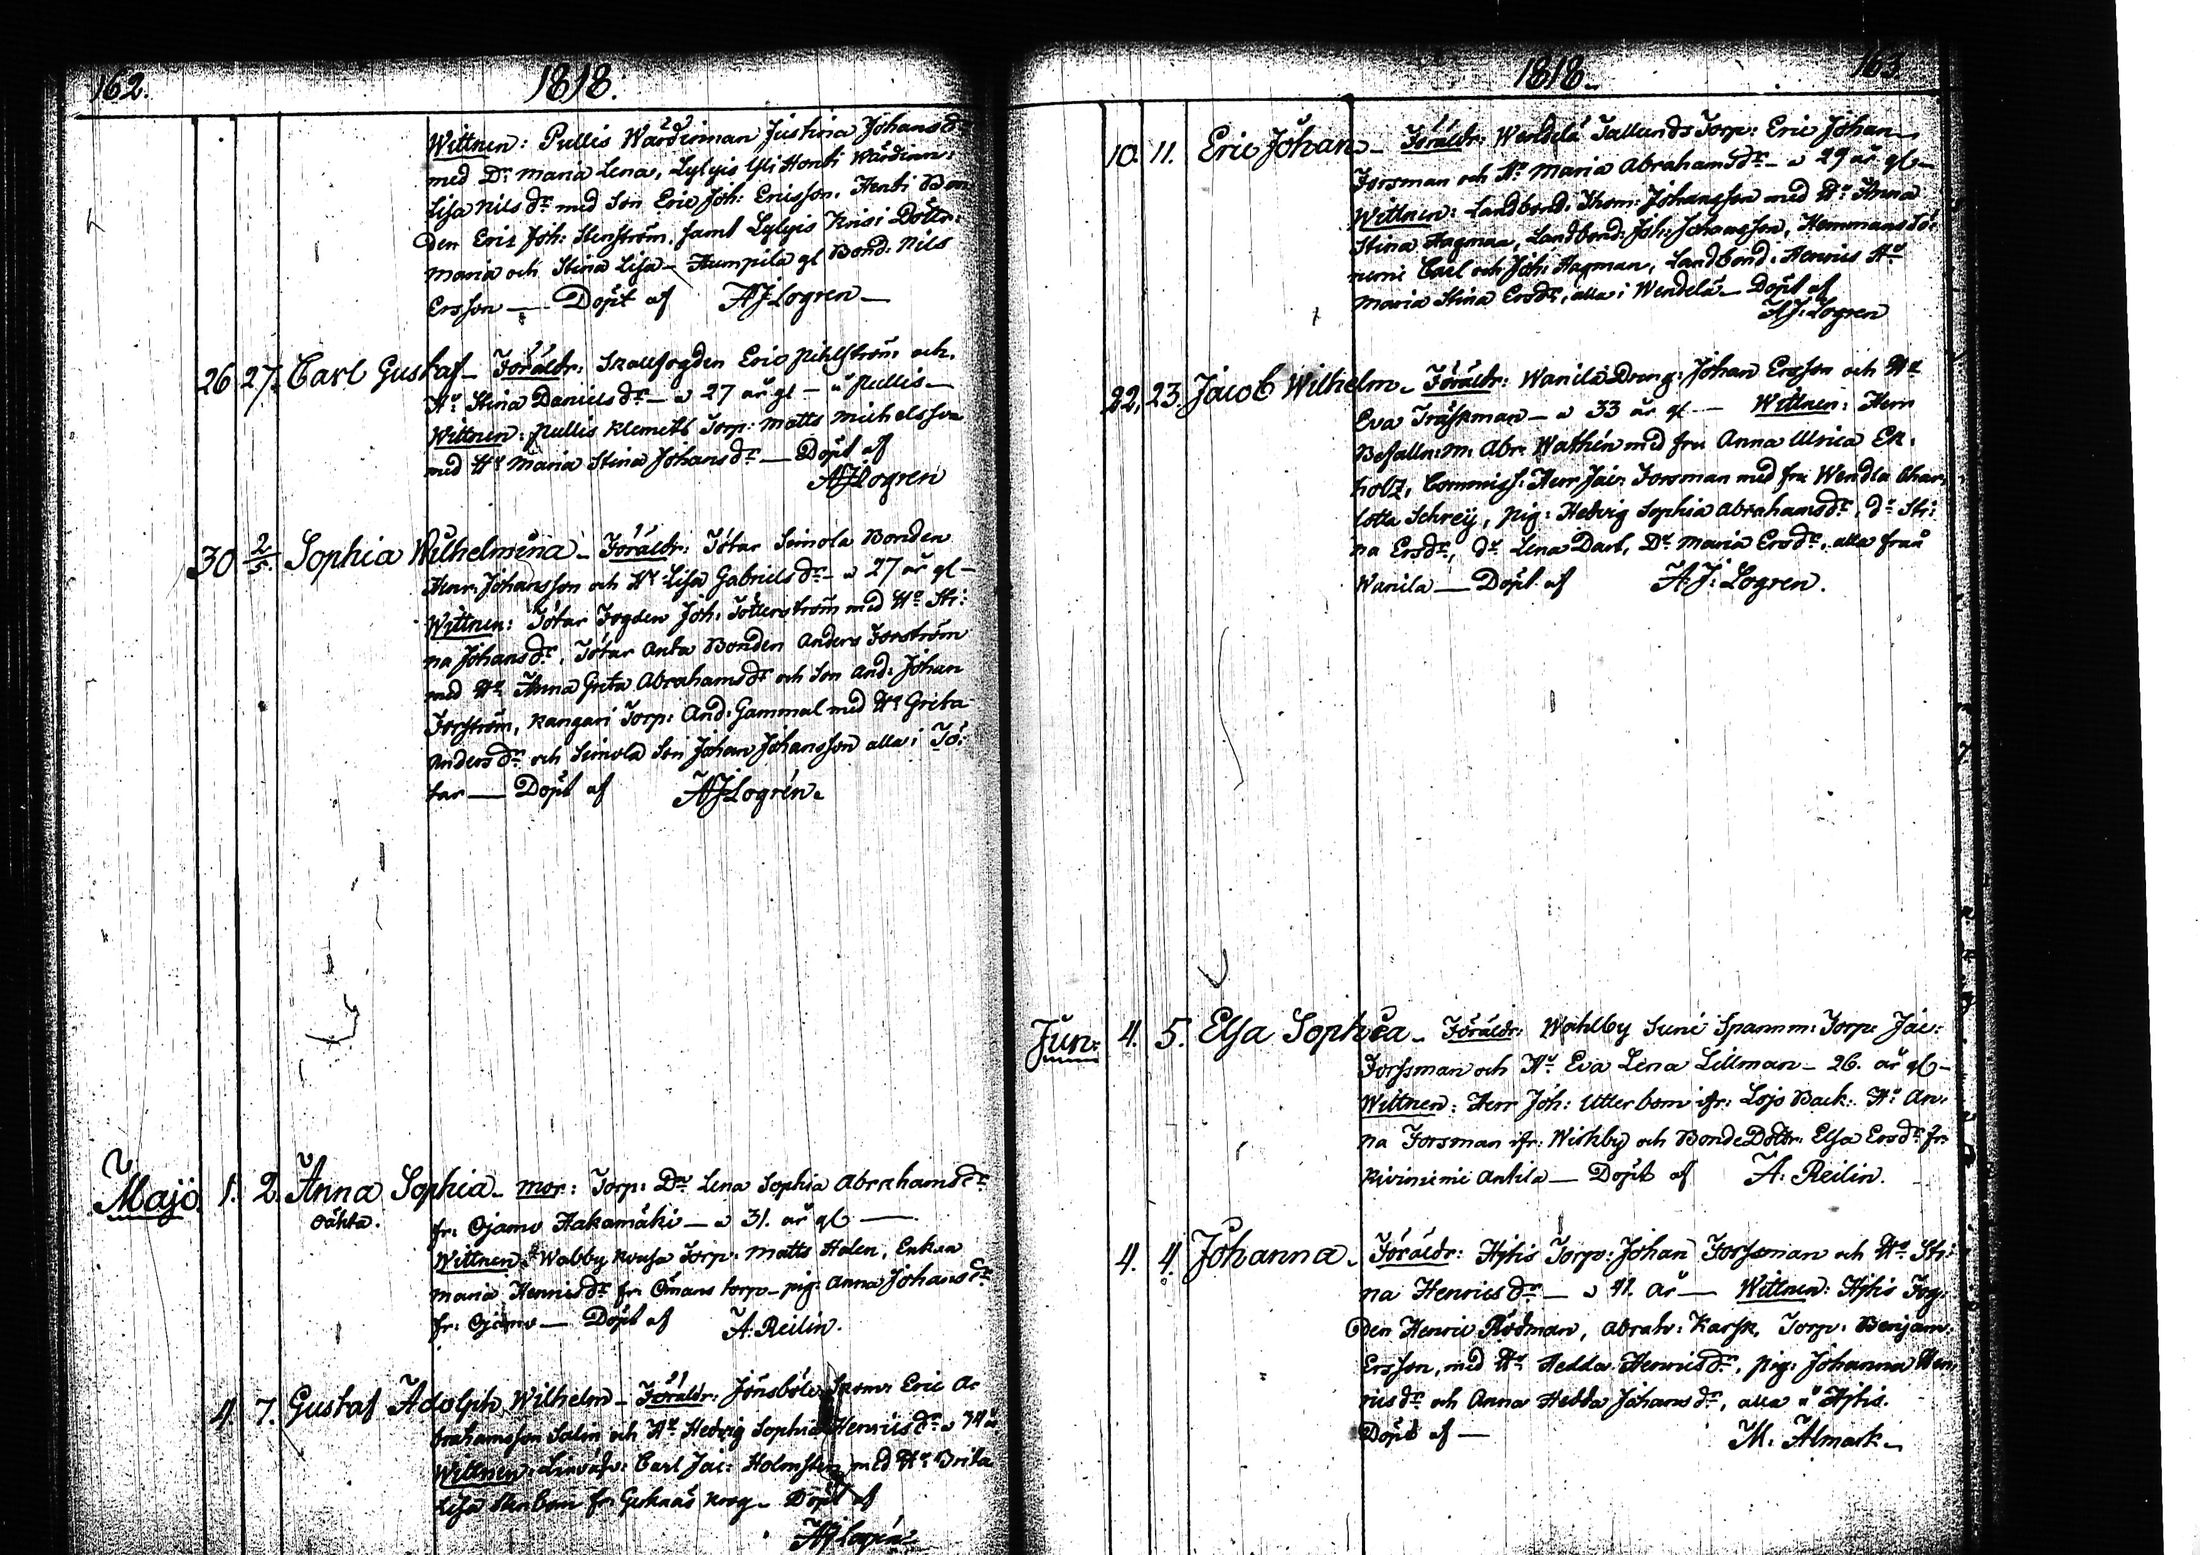 162.
1818.
Wittnen: Pullis Wärdinnan Justina Johansdr
med Dr Maria Lena, Lylyis Yli Honti Wärdinn:
Lisa Nils dr med Son Eric Joh: Ericsson. Henti Bon
den Eric Joh: Stenström, samt Lylyis Krisi Döttr:
Maria och Stina Lisa — Humpila gl Bond: Nils
Ersson — Döpt af AJLogren —
26 27. Carl Gustaf — Föräldr: Skallfogden Eric Pihlström och
Hu Stina Daniels dr — 27 år gl — å Pullis —
Wittnen: Pullis Klemets Torp: Matts Michelsson
med Hu Maria Stina Johans dr — Döpt af
AJLogren
30 2/5. Sophia Wilhelmina — Föräldr: Jötar Simola Bonden
Henr: Johansson och Hu: Lisa Gabriels dr — 27 år gl —
Wittnen: Jötar Fogden Joh: Jötterström med Hu Sti:
na Johans dr, Jötar Anta Bonden Anders Forström
med Hu Anna Greta Abrahams dr och Son And: Johan
Forström, Kangari Torp: And: Gammal med Hu Greta
Anders dr och Simola Son Johan Johansson alla i Jö:
tar — Döpt af AJLogrén.
Majo. 1. 2. Anna Sophia — Mor: Torp: Dr Lena Sophia Abrahams dr
oäkta. fr: Ojamo Hakamäki — 31. år gl —
Wittnen: Wabby Torp: Matts Holen, Enkan
Maria Henricsdr fr: Ömans torp — pig: Anna Johansdr
fr: Ojamo — Döpt af A: Reilin.
4. 7. Gustaf Adolph Wilhelm — Föräldr: Jönsböle Eric A:
brahamsson Salin och Hu Hedvig Sophia Henricsdr 34 år
Wittnen: Carl Jac: Holmsten med Hu Brita
Lisa Stenbom fr: krog — Döpt af
AJLogrén
1818.
163
10. 11. Eric Johan — Föräldr: Wendelä Tallunds Torp: Eric Johan
Forsman och Hu Maria Abrahamsdr — 29 år gl —
Wittnen: Landbond: Thom: Johansson med Hu Anna
Stina Hagman, Landbond: Joh: Johansson, HemmansSö:
nerne Carl och Joh: Hagman, Landbond: Henrics Hu
Maria Stina Ersdr, alla i Wendelä — Döpt af
AJ: Logren
22. 23. Jacob Wilhelm — Föräldr: Wanila Dräng: Johan Ersson och Hu
Eva Träskman — 33 år gl — Wittnen: Herr
Befalln:m: Abr: Wathén med fru Anna Ulrica Ek:
holtz, Commiss: Herr Jac: Forsman med fru Wendla Char:
lotta Schreÿ, pig: Hedvig Sophia Abrahamsdr, dr Sti:
na Ersdr, dr Lena Dart, Dr Maria Ersdr, alla från
Wanila — Döpt af AJ: Logren.
Jun: 4. 5. Elsa Sophia — Föräldr: Wohlby Suni Spannm: Torp: Jac:
Forssman och Hu Eva Lena Lillman — 26. år gl —
Wittnen: Herr Joh: Utterbom ifr: Lojo Back: Hu An:
na Forsman ifr: Wickby och BondeDottr: Elsa Ersdr fr:
Kiviniemi Anttila — Döpt af A: Reilin.
4. 4. Johanna — Föräldr: Hjtis Torp: Johan Forssman och Hu Sti:
na Henricsdr — 41. år — Wittnen: Hjtis Fog:
den Henric Rödman, Abrah: Karsk, Torp: Benjam:
Ersson, med Hu Hedda Henricsdr, pig: Johanna Hen:
ricsdr och Anna Hedda Johansdr, alla å Hjtis.
Döpt af — M. Almark —